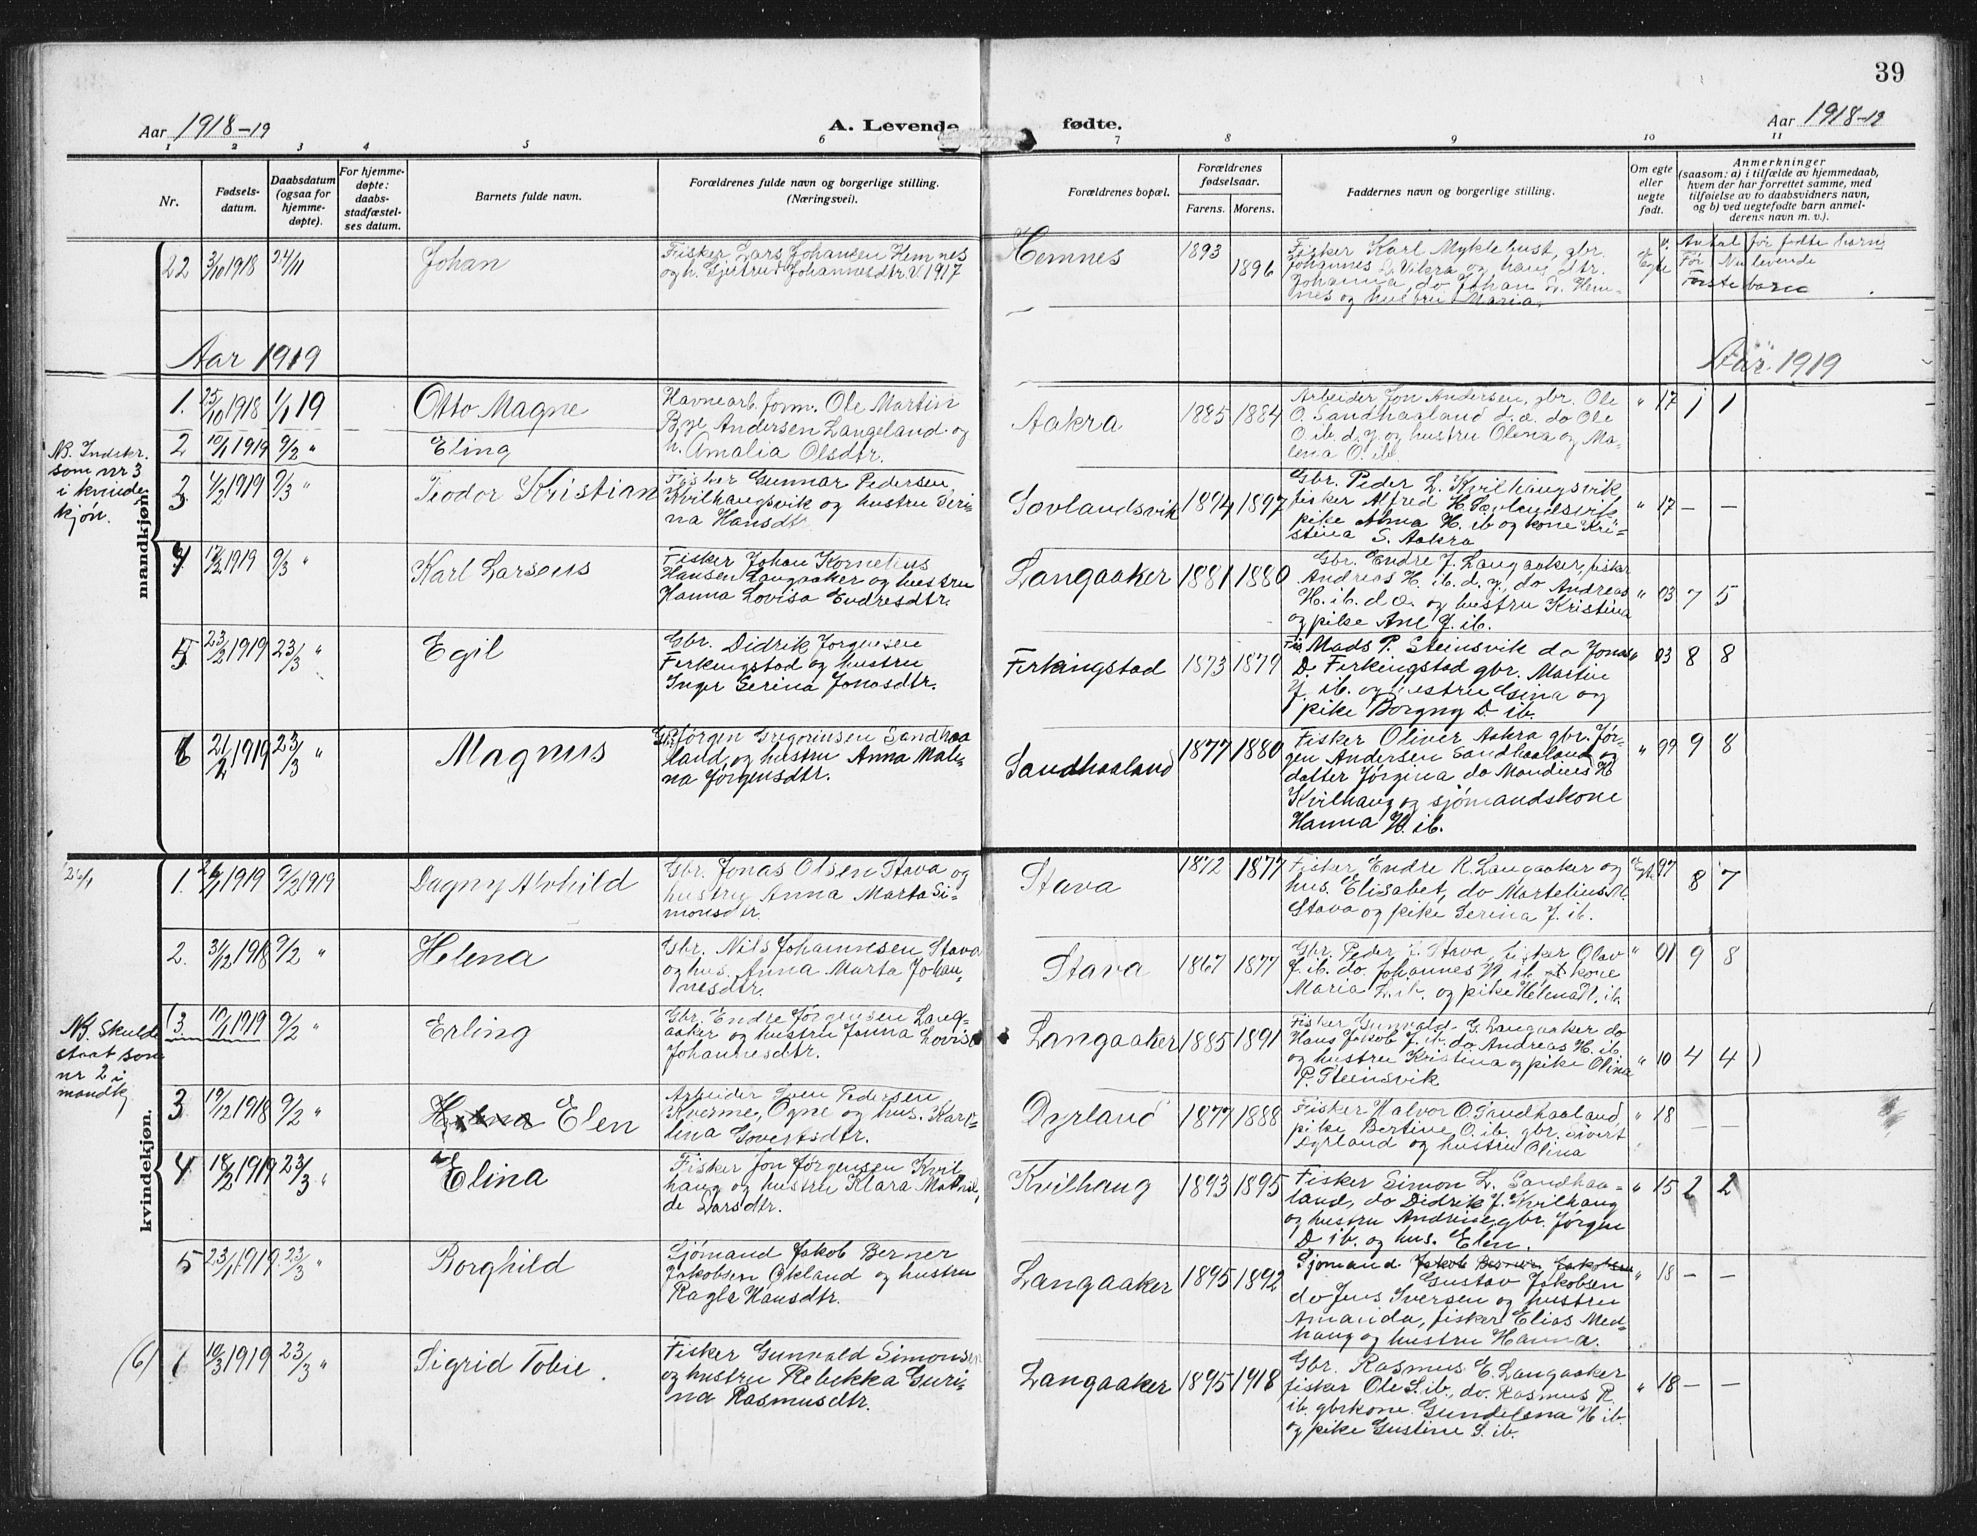 39
Aar 1918-19
A. Levende fødte.
Aar 1918-19
1 2 3 4 5 6 7 8 9 10 11
Nr.
Fødsels-
datum.
Daabsdatum
(ogsaa for
hjemme-
døpte).
For hjemme-
døpte:
daabs-
stadfæstel-
ses datum.
Barnets fulde navn.
Forældrenes fulde navn og borgerlige stilling.
(Næringsvei).
Forældrenes bopæl.
Forældrenes
fødselsaar.
Farens. Morens.
Faddernes navn og borgerlige stilling.
Om egte
eller
uegte
født.
Anmerkninger
(saasom: a) i tilfælde av hjemmedaab,
hvem der har forrettet samme, med
tilføielse av to daabsvidners navn,
og b) ved uegtefødte barn anmel-
derens navn m. v.).
mandkjøn.
22 3/10 1918 24/11 Johan
Fisker Lars Johansen Hemnes
og h. Gjertrud Johannesdtr. V 1917
Hemnes 1893 1896
Fisker Karl Myklebust, gbr.
Johannes L. Vikra og hans dtr.
Johanna, do Johan L. Hem-
nes og hustru Maria.
Egte
Antal før fødte børn
Før Nu levende
Første barn
Aar 1919
Aar 1919
1. 25/10 1918 1/1 19 Otto Magne
Havnearb. form. Ole Martin
Andersen Langeland og
h. Amalia Olsdtr.
Aakra 1885 1884
Arbeider Jon Andersen, gbr. Ole
O. Sandhaaland d. æ. do Ole
O. ib. d. y. og hustru Olena og Ma-
lena O. ib.
" 17 1 1
NB. Indskr.
som nr 3
i kvinde
kjøn.
2 10/1 1919 9/2 " Eling
3 1/2 1919 9/3 " Teodor Kristian
Fisker Gunnar Pedersen
Kvilhaugsvik og hustru Seri-
na Hansdt
Sævlandsvik 1894 1897
Gbr. Peder L. Kvilhaugsvik
fisker Alfred H. Sævlandsvik
pike Alma H. ib og kone Kri-
stina S. Aakra
" 17 — —
4 12/2 1919 9/3 " Karl Larsens
Fisker Johan Kornelius
Hansen Langaaker og hustru
Hanna Lovisa Endresdtr.
Langaaker 1881 1880
Gbr. Endre J. Langaaker, fisker
Andreas H. ib. d. y., do Andreas
H. ib. d æ. og hustru Kristina
og pike Ane J. ib.
" 03 7 5
5 23/2 1919 23/3 " Egil
Gbr. Didrik Jørgensen
Ferkingstad og hustru
Inger Serina Jonasdtr.
Ferkingstad 1873 1879
Fis Mads P. Steinsvik do Jonas
D. Ferkingstad gbr. Martin
J. ib. og hustru Gina og
pike Borgny D. ib.
" 03 8 8
6 21/2 1919 23/3 " Magnus
Gbr. Jørgen Gregoriusen Sandhaa
land, og hustru Anna Mali-
na Jørgensdtr.
Sandhaaland 1877 1880
Fisker Oliver Aakra gbr. Jør-
gen Andersen Sandhaaland og
datter Jørgina do Mandius H
Kvilhaug og sjømandskone
Hanna H. ib.
" 99 9 8
kvindekjøn.
26/1
1. 26/1 1919 9/2 1919 Dagny Alvhild
Gbr. Jonas Olsen Stava og
hustru Anna Marta Si-
monsdtr.
Stava 1872 1877
Fisker Endre R. Langaaker og
hus. Elisabet, do Martelius M.
Stava og pike Serina J. ib.
Egte 97 8 7
2. 31/12 1918 9/2 " Helena
Gbr. Nils Johannesen Stava
og hus. Anna Marta Johan-
nesdtr.
Stava 1867 1877
Gbr. Peder J. Stava, fisker Olav
J. ib. do. Johannes N. ib. kone
Maria L. ib. og pike Helena N. ib.
" 01 9 8
NB. Skulde
staat som
nr 2 i
mandkj
(3. 10/1 1919 9/2 " Erling
Gbr. Endre Jørgensen Lang-
aaker og hustru Janna Lovise
Johannesdtr.
Langaaker 1885 1891
Fisker Gunvald G. Langaaker do
Hans Jakob J. ib. do Andreas H. ib.
og hustru Kristina og pike Olina
P. Steinsvik
" 10 4 4 )
3 19/12 1918 9/2 " Helena Elen
Arbeider Sven Pedersen
Kverme, Ogne og hus. Karo-
lina Govertsdtr.
Dyrland 1877 1888
Fisker Halvor O. Sandhaaland,
pike Bertine O. ib. gbr. Sivert
Dyrland og hustru Olina
" 18 — —
4 18/2 1919 23/3 " Elina
Fisker Jon Jørgensen Kvil
haug og hustru Klara Mathil
de Larsdtr.
Kvilhaug 1893 1895
Fisker Simon L. Sandhaa-
land, do Didrik J. Kvilhaug
og hustru Andrine, gbr. Jørgen
D ib. og hus. Elen.
" 15 2 2
5 23/1 1919 23/3 " Borghild
Sjømand Jakob Berner
Jakobsen Økland og hustru
Ragla Hansdtr.
Langaaker 1895 1892
Sjømand Jakob Berner Jakobsen
Gustav Jakobsen
do Jens Iversen og hustru
Amanda, fisker Elias Med-
haug og hustru Hanna.
" 18 — —
(6) 6 10/3 1919 23/3 " Sigrid Tobie.
Fisker Gunvald Simonsen
og hustru Rebekka Guri-
na Rasmusdtr.
Langaaker 1895 1918
Gbr. Rasmus E. Langaaker
fisker Ole S. ib., do. Rasmus R.
ib. gbrkone Gundelena H ib.
og pike Gustine S. ib.
" 18 — —